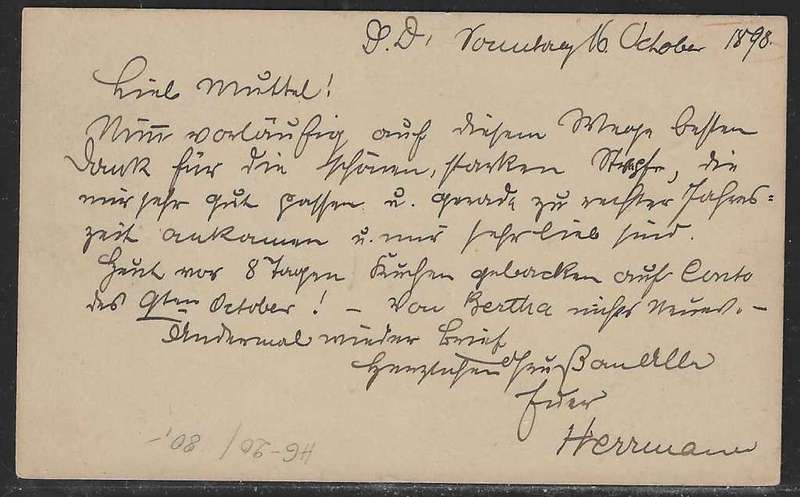 D. D. Sonntag 16. October 1898.
Lieb Muttel!
Nimm vorläufig auf diesem Wege besten
Dank für die schönen, starken Strümpfe, die
mir sehr gut passen u. gerade zu rechter Jahres=
zeit ankamen u. mir sehr lieb sind.
Heut vor 8 Tagen Kuchen gebacken auf Conto
des 9ten October! – Von Bertha nichts Neues. –
Andermal wieder Brief
Herzlichen Gruß an Alle
Euer
Herrmann
HG-20/ 80,-